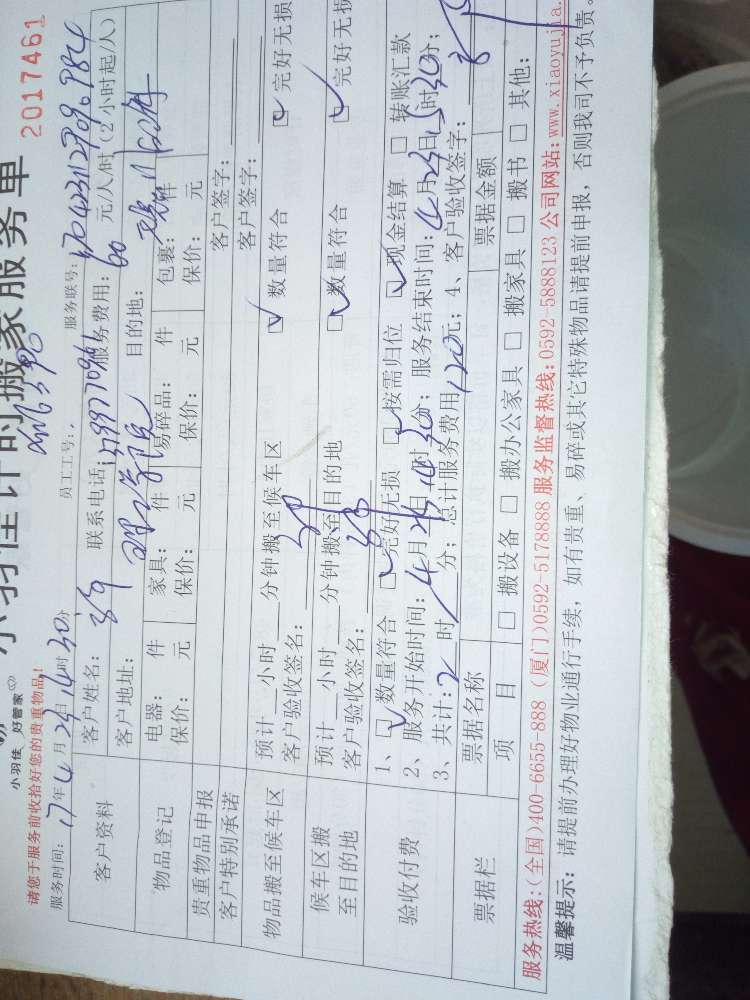 小羽佳计时搬家服务单
2017461
小羽佳 好管家
请您于服务前收拾好您的贵重物品!
员工工号:
服务联号: 1704231129096984
服务时间: 17年4月23日14时30分
客户资料
客户姓名: 联系电话: 服务费用: 60 元/人/时(2小时起/人)
客户地址: 目的地:
物品登记
电器: 件 家具: 件 易碎品: 件 包裹: 件
保价: 元 保价: 元 保价: 元 保价: 元
贵重物品申报 客户签字:
客户特别承诺 客户签字:
物品搬至候车区
预计 小时 分钟搬至候车区 数量符合 完好无损
客户验收签名:
候车区搬至目的地
预计 小时 分钟搬至目的地 数量符合 完好无损
客户验收签名:
验收付费
1、 数量符合 完好无损 按需归位 现金结算 转账汇款
2、服务开始时间: 4月23日14时30分; 服务结束时间: 4月23日15时30分;
3、共计: 2时 分; 总计服务费用120元; 4、客户验收签字:
票据栏
票据名称 票据金额
项 目 搬设备 搬办公家具 搬家具 搬书 其他:
服务热线:(全国)400-6655-888 (厦门)0592-5178888 服务监督热线:0592-5888123 公司网站:www.xiaoyujia.
温馨提示: 请提前办理好物业通行手续, 如有贵重、易碎或其它特殊物品请提前申报, 否则我司不予负责。